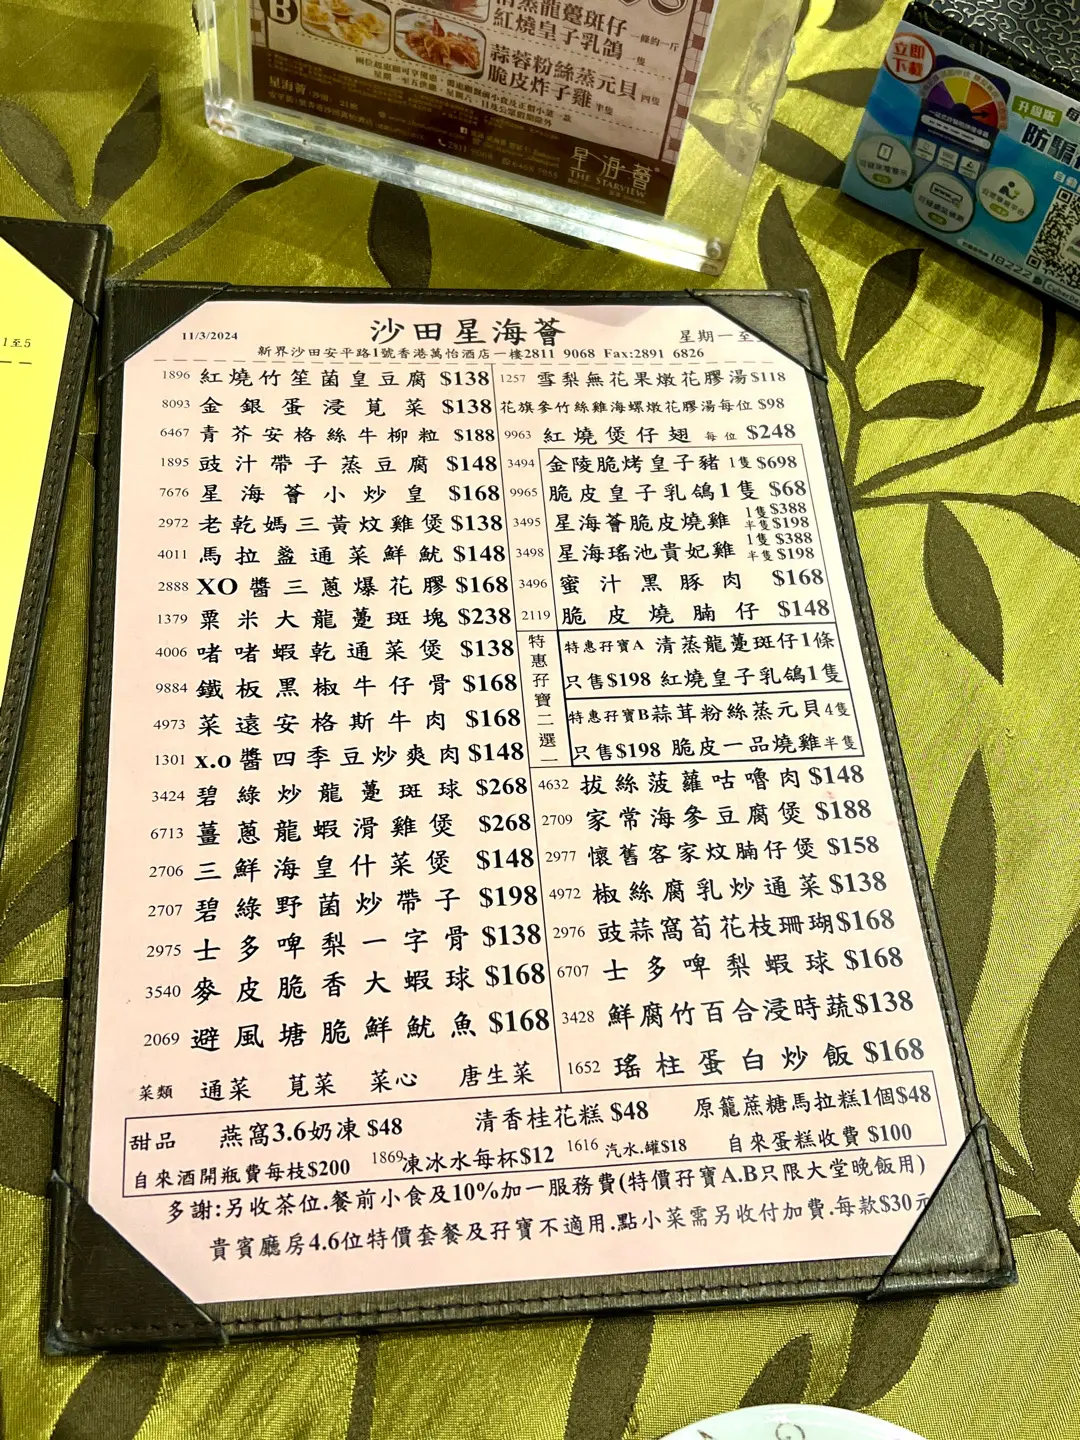 B
清蒸龍躉斑仔
紅燒皇子乳鴿
一條約一斤
一隻
蒜蓉粉絲蒸元貝 四隻
脆皮炸子雞 半隻
星海薈
THE STARVIEW
立即下載
升級版
防騙
18222
1至5
11/3/2024
沙田星海薈
星期一至
新界沙田安平路1號香港萬怡酒店一樓2811 9068 Fax:2891 6826
1896 紅燒竹笙菌皇豆腐 $138
8093 金銀蛋浸莧菜 $138
6467 青芥安格絲牛柳粒 $188
1895 豉汁帶子蒸豆腐 $148
7676 星海薈小炒皇 $168
2972 老乾媽三黃炆雞煲 $138
4011 馬拉盞通菜鮮魷 $148
2888 XO醬三蔥爆花膠 $168
1379 粟米大龍躉斑塊 $238
4006 啫啫蝦乾通菜煲 $138
9884 鐵板黑椒牛仔骨 $168
4973 菜遠安格斯牛肉 $168
1301 x.o醬四季豆炒爽肉 $148
3424 碧綠炒龍躉斑球 $268
6713 薑蔥龍蝦滑雞煲 $268
2706 三鮮海皇什菜煲 $148
2707 碧綠野菌炒帶子 $198
2975 士多啤梨一字骨 $138
3540 麥皮脆香大蝦球 $168
2069 避風塘脆鮮魷魚 $168
菜類 通菜 莧菜 菜心 唐生菜
1257 雪梨無花果燉花膠湯$118
花旗參竹絲雞海螺燉花膠湯每位 $98
9963 紅燒煲仔翅 每位 $248
3494 金陵脆烤皇子豬 1隻 $698
9965 脆皮皇子乳鴿1隻 $68
3495 星海薈脆皮燒雞 1隻$388 半隻$198
3498 星海瑤池貴妃雞 1隻$388 半隻$198
3496 蜜汁黑豚肉 $168
2119 脆皮燒腩仔 $148
特惠孖寶二選一
特惠孖寶A 清蒸龍躉斑仔1條
只售$198 紅燒皇子乳鴿1隻
特惠孖寶B蒜茸粉絲蒸元貝4隻
只售$198 脆皮一品燒雞半隻
4632 拔絲菠蘿咕嚕肉 $148
2709 家常海參豆腐煲 $188
2977 懷舊客家炆腩仔煲 $158
4972 椒絲腐乳炒通菜 $138
2976 豉蒜窩荀花枝珊瑚 $168
6707 士多啤梨蝦球 $168
3428 鮮腐竹百合浸時蔬 $138
1652 瑤柱蛋白炒飯 $168
甜品 燕窩3.6奶凍 $48 清香桂花糕 $48 原籠蔗糖馬拉糕1個$48
自來酒開瓶費每枝$200 1869凍冰水每杯$12 1616 汽水.罐$18 自來蛋糕收費 $100
多謝:另收茶位.餐前小食及10%加一服務費(特價孖寶A.B只限大堂晚飯用)
貴賓廳房4.6位特價套餐及孖寶不適用.點小菜需另收付加費.每款$30元